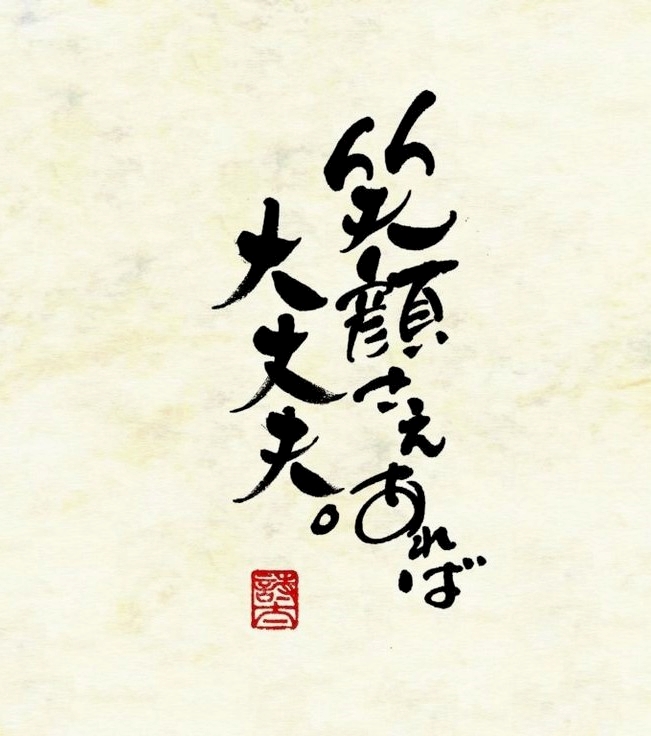 笑顔さえあれば
大丈夫。